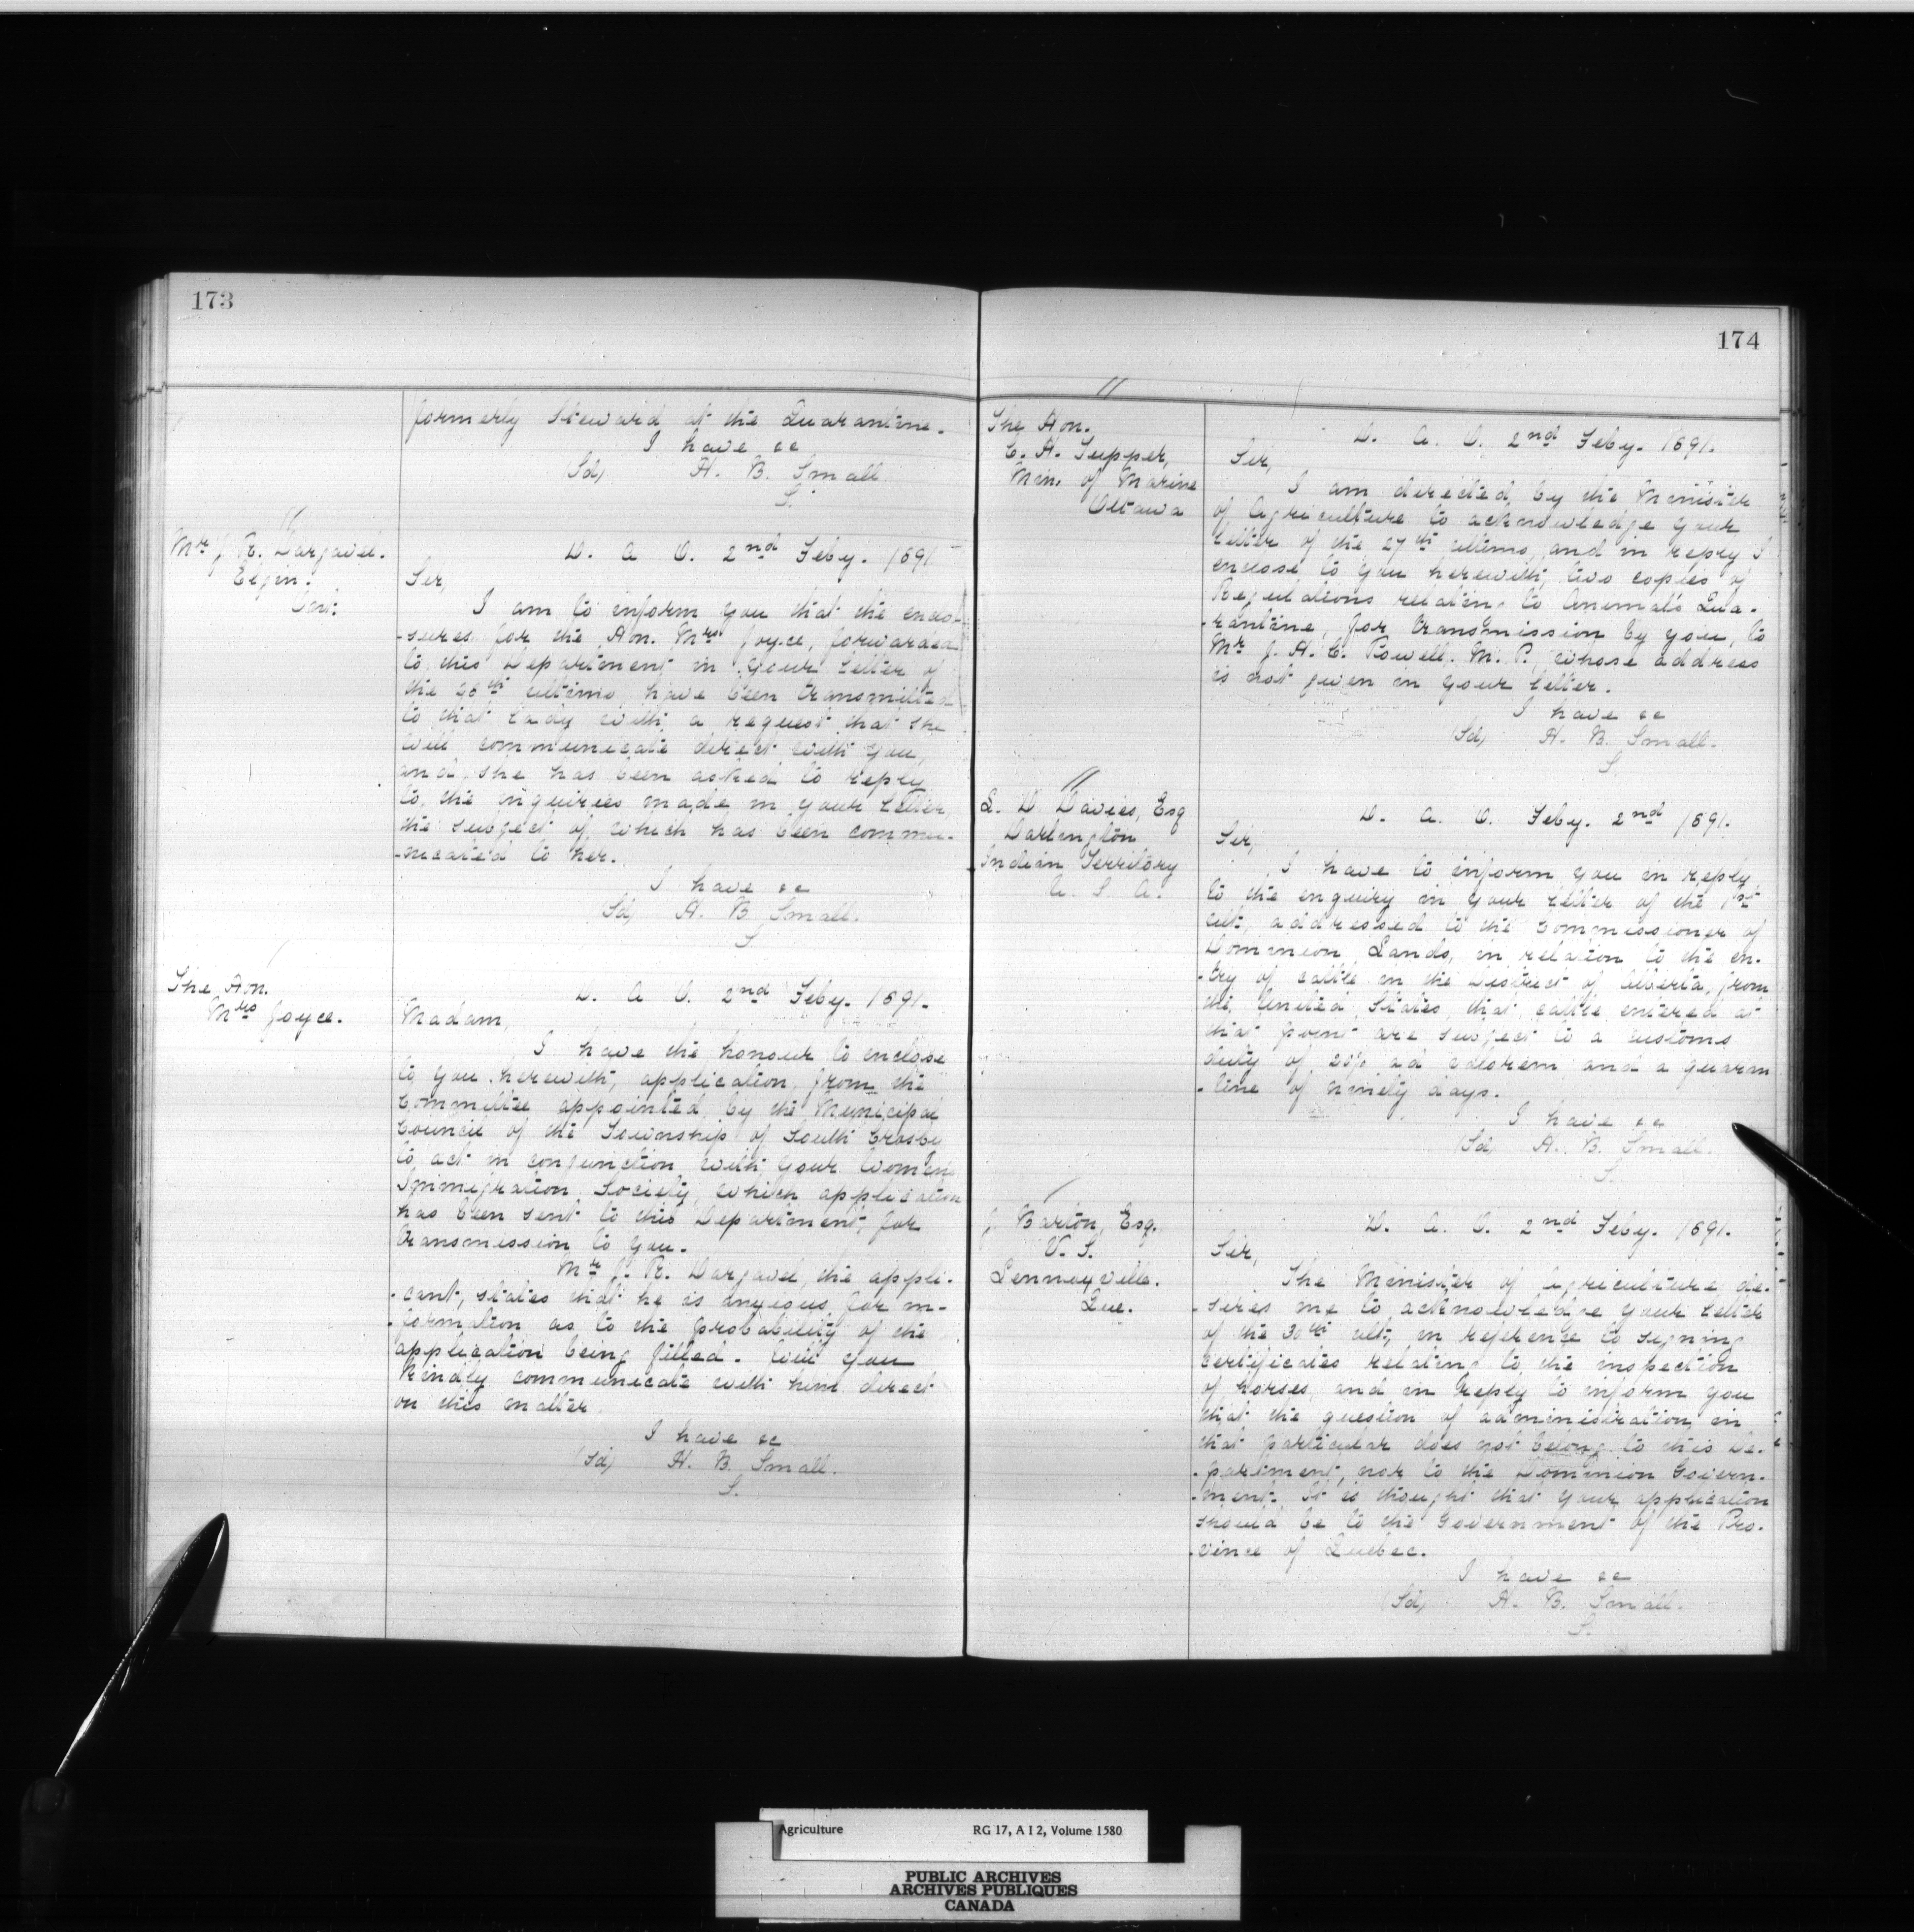 173
formerly Steward at the Quarantine.
I have &c
(Sd) H. B. Small
S.
Mr J. R. Dargavel.
Elgin.
Ont.
D. A. O. 2nd Feby. 1891
Sir,
I am to inform you that the enclo-
-sures for the Hon. Mrs Joyce, forwarded
to this Department in your letter of
the 28th ultimo, have been transmitted
to that Lady with a request that she
will communicate direct with you,
and she has been asked to reply
to the inquiries made in your letter,
the subject of which has been commu-
-nicated to her.
I have &c
(Sd) H. B. Small.
S.
The Hon.
Mrs Joyce.
D. A. O. 2nd Feby. 1891.
Madam,
I have the honour to enclose
to you herewith, application from the
Committee appointed by the Municipal
Council of the Township of South Crosby
to act in conjunction with your Women's
Immigration Society, which application
has been sent to this Department, for
transmission to you.
Mr J. R. Dargavel, the appli-
-cant, states that he is anxious for in-
-formation as to the probability of the
application being filled. Will you
kindly communicate with him direct
on this matter
I have &c
(Sd) H. B. Small.
S.
174
The Hon.
C. H. Tupper,
Min. of Marine
Ottawa
D. A. O. 2nd Feby. 1891.
Sir,
I am directed by the Minister
of Agriculture to acknowledge your
letter of the 27th ultimo, and in reply I
enclose to you herewith, two copies of
Regulations relating to Animals Qua-
-rantine, for transmission by you, to
Mr J. H. C. Powell. M. P., whose address
is not given in your letter.
I have &c
(Sd) H. B. Small.
S.
L. D. Davies, Esq
Darlington
Indian Territory
U. S. A.
D. A. O. Feby. 2nd 1891.
Sir,
I have to inform you in reply
to the enquiry in your letter of the 1st
ult, addressed to the Commissioner of
Dominion Lands, in relation to the en-
-try of cattle in the District of Alberta, from
the United States, that cattle entered at
that point are subject to a customs
duty of 20% ad valorem and a quaran
-tine of ninety days.
I have &c
(Sd) H. B. Small.
S.
J. Barton, Esq.
V. S.
Lennoxville.
Que.
D. A. O. 2nd Feby. 1891.
Sir,
The Minister of Agriculture de-
-sires me to acknowledge your letter
of the 30th ult, in reference to signing
certificates relating to the inspection
of horses, and in reply to inform you
that the question of administration in
that particular does not belong to this De-
-partment, nor to the Dominion Govern-
-ment. It is thought that your application
should be to the Government of the Pro-
-vince of Quebec.
I have &c
(Sd) H. B. Small.
S.
Agriculture RG 17, A I 2, Volume 1580
PUBLIC ARCHIVES
ARCHIVES PUBLIQUES
CANADA